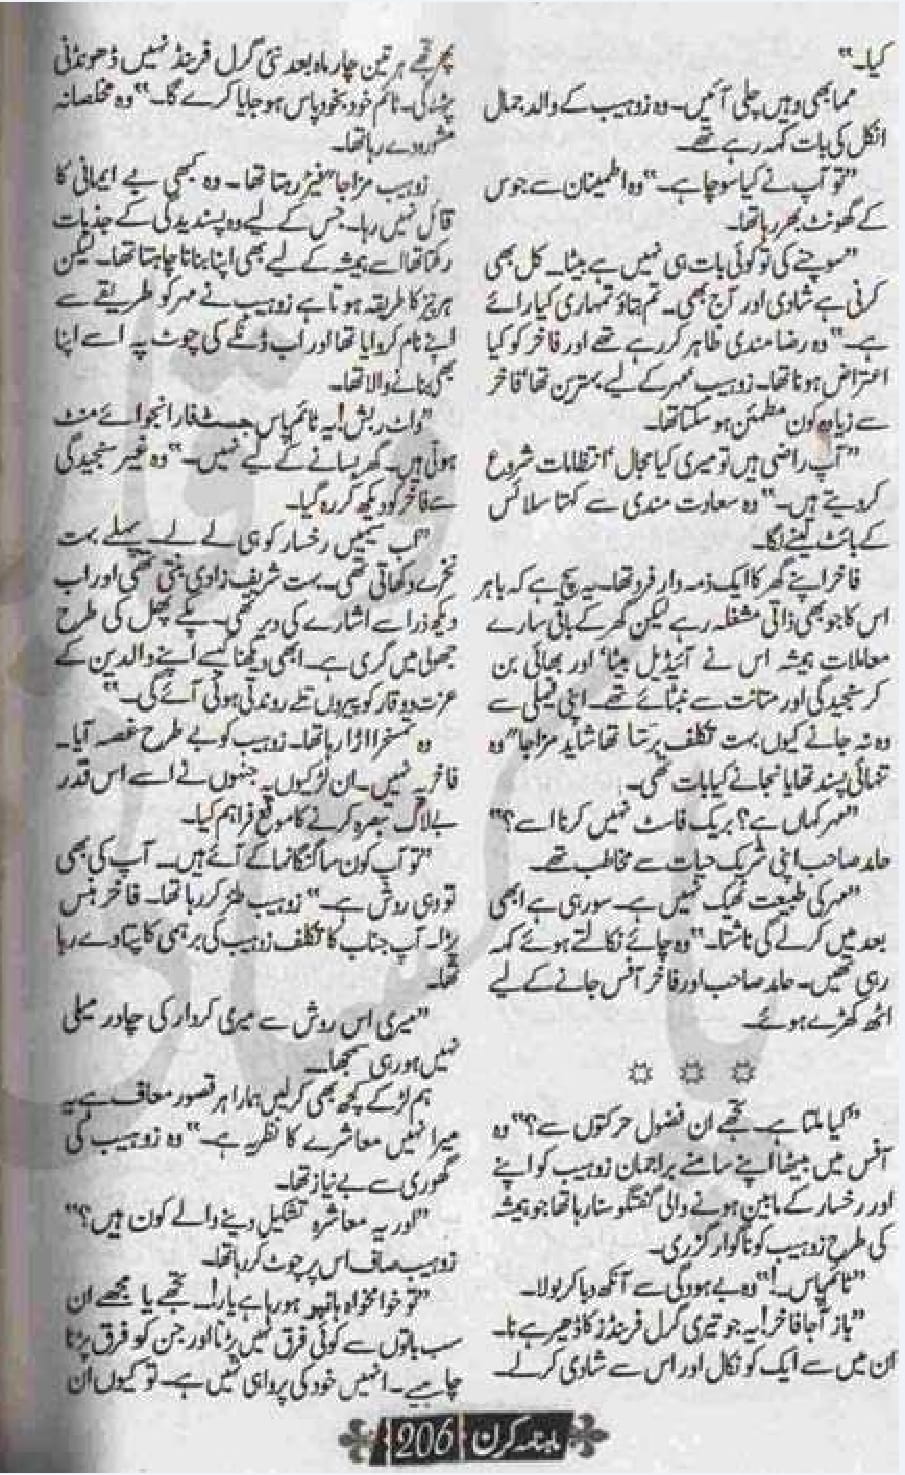 کیا۔"
مما بھی وہیں چلی آئیں۔ وہ زوہیب کے والد جمال
انکل کی بات کہہ رہے تھے۔
"تو آپ نے کیا سوچا ہے۔" وہ اطمینان سے جوس
کے گھونٹ بھر رہا تھا۔
"سوچنے کی تو کوئی بات ہی نہیں ہے بیٹا۔ کل بھی
کرنی ہے شادی اور آج بھی۔ تم بتاؤ تمہاری کیا رائے
ہے۔" وہ رضامندی ظاہر کر رہے تھے اور فاخر کو کیا
اعتراض ہونا تھا۔ زوہیب مہر کے لیے بہترین تھا' فاخر
سے زیادہ کون مطمئن ہو سکتا تھا۔
"آپ راضی ہیں تو میری کیا مجال' انتظامات شروع
کر دیتے ہیں۔" وہ سعادت مندی سے کہتا سلائس
کے بائٹ لینے لگا۔
فاخر اپنے گھر کا ایک ذمہ دار فرد تھا۔ یہ سچ ہے کہ باہر
اس کا جو بھی ذاتی مشغلہ رہے لیکن گھر کے باقی سارے
معاملات ہمیشہ اس نے آئیڈیل بیٹا' اور بھائی بن
کر سنجیدگی اور متانت سے نبٹائے تھے۔ اپنی فیملی سے
وہ نہ جانے کیوں بہت تکلف برتتا تھا شاید مزاجا" وہ
تنہائی پسند تھا یا نجانے کیا بات تھی۔
"مہر کہاں ہے؟ بریک فاسٹ نہیں کرنا اسے؟"
حامد صاحب اپنی شریک حیات سے مخاطب تھے۔
"مہر کی طبیعت ٹھیک نہیں ہے۔ سو رہی ہے ابھی
بعد میں کرلے گی ناشتا۔" وہ چائے نکالتے ہوئے کہہ
رہی تھیں۔ حامد صاحب اور فاخر آفس جانے کے لیے
اٹھ کھڑے ہوئے۔
"کیا ملتا ہے۔ تجھے ان فضول حرکتوں سے؟" وہ
آفس میں بیٹھا اپنے سامنے براجمان زوہیب کو اپنے
اور رخسار کے مابین ہونے والی گفتگو سنا رہا تھا جو ہمیشہ
کی طرح زوہیب کو ناگوار گزری۔
"ٹائم پاس۔!" وہ بے ہودگی سے آنکھ دبا کر بولا۔
"باز آجا فاخر! یہ جو تیری گرل فرینڈز کا ڈھیر ہے نا۔
ان میں سے ایک کو نکال اور اس سے شادی کرلے۔
پھر تجھے ہر تین چار ماہ بعد نئی گرل فرینڈ نہیں ڈھونڈنی
پڑے گی۔ ٹائم خود بخود پاس ہو جایا کرے گا۔" وہ مخلصانہ
مشورہ دے رہا تھا۔
زوہیب مزاجا" فیئر رہتا تھا۔ وہ کبھی بے ایمانی کا
قائل نہیں رہا۔ جس کے لیے وہ پسندیدگی کے جذبات
رکھتا تھا اسے ہمیشہ کے لیے بھی اپنا بنانا چاہتا تھا۔ لیکن
ہر چیز کا طریقہ ہوتا ہے زوہیب نے مہر کو طریقے سے
اپنے نام کروایا تھا اور اب ڈنکے کی چوٹ پہ اسے اپنا
بھی بنانے والا تھا۔
"واٹ ربش! یہ ٹائم پاس جسٹ فار انجوائے منٹ
ہوتی ہیں۔ گھر بسانے کے لیے نہیں۔" وہ غیر سنجیدگی
سے فاخر کو دیکھ کر رہ گیا۔
"اب سیکنس رخسار کو ہی لے لے۔ پہلے بہت
نخرے دکھاتی تھی۔ بہت شریف زادی بنتی تھی اور اب
دیکھ ذرا سے اشارے کی دیر تھی۔ پکے پھل کی طرح
جھولی میں گری ہے۔ ابھی دیکھنا کیسے اپنے والدین کے
عزت و وقار کو پیروں تلے روندتی ہوئی آئے گی۔"
وہ تمسخر اڑا رہا تھا۔ زوہیب کو بے طرح غصہ آیا۔
فاخر پہ نہیں۔ ان لڑکیوں پہ جنہوں نے اسے اس قدر
بے لاگ تبصرہ کرنے کا موقع فراہم کیا۔
"تو آپ کون سا گنگا نہا کے آئے ہیں۔ آپ کی بھی
تو وہی روش ہے۔" زوہیب طنز کر رہا تھا۔ فاخر ہنس
پڑا۔ آپ جناب کا تکلف زوہیب کی برہمی کا پتا دے رہا
تھا۔
"میری اس روش سے میری کردار کی چادر میلی
نہیں ہو رہی سمجھا۔
ہم لڑکے کچھ بھی کرلیں ہمارا ہر قصور معاف ہے یہ
میرا نہیں معاشرے کا نظریہ ہے۔" وہ زوہیب کی
گھوری سے بے نیاز تھا۔
"اور یہ معاشرہ تشکیل دینے والے کون ہیں؟"
زوہیب صاف اس پر چوٹ کر رہا تھا۔
"تو خوامخواہ ہائپر ہو رہا ہے یار!۔ تجھے یا مجھے ان
سب باتوں سے کوئی فرق نہیں پڑتا اور جن کو فرق پڑنا
چاہیے۔ انہیں خود کی پروا ہی نہیں ہے۔ تو کیوں ان
ماہنامہ کرن 206